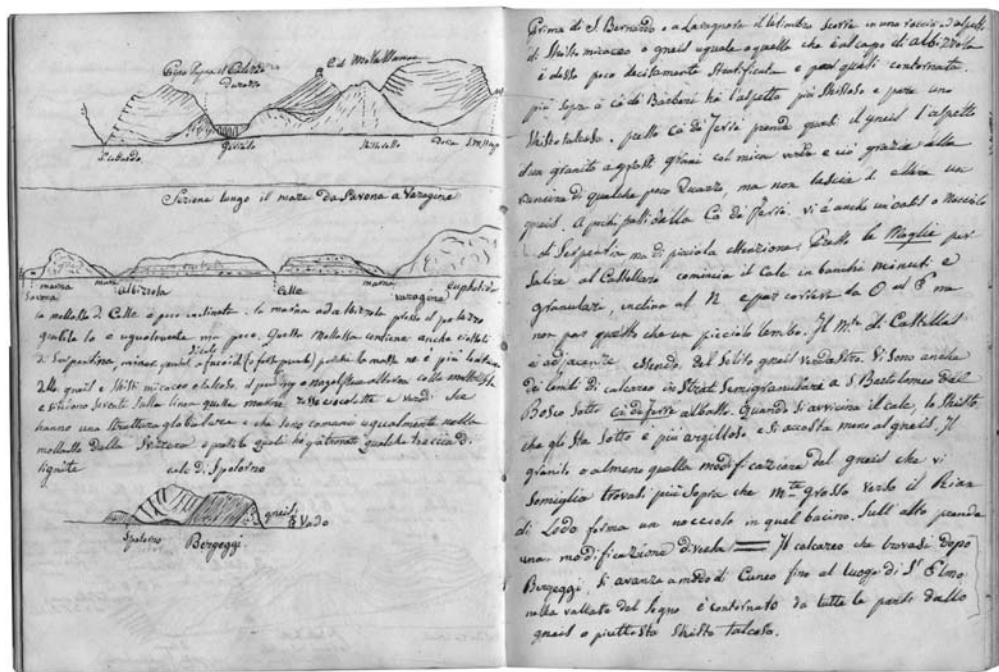 C.d. Mollassana
Giovo
Sezione lungo il mare da Savona a Varagine
marna
Savona
mare
Albizzola
Celle
marna
varagine
Euphotide
la mollassa di Celle è poco inclinata. la marna ad Albizzola presso il palazzo
gentile lo è ugualmente ma poco. Questa mollassa contiene anche ciottoli
di Serpentina, poiché la massa ne è più lontana
dalle gneiss e skisti micaceo o talcoso, il pudding o nagelflue alterna colla mollassa
e si vedono soventi sulla linea quelle marne rosse cioccolatte e verdi che
hanno una struttura globulare e che sono comuni ugualmente nella
mollassa della Svizzera e qualche traccia di
lignite
cale di Spotorno
gneiss
Vado
Spotorno
Bergeggi
Prima di S. Bernardo o a Lavagnora il Letimbro scorre in una roccia ad aspetto
di skisto micaceo o gneis uguale a quello che è al capo di Albizzola
è desso poco decisamente stratificata e par quasi contornata.
più sopra a cà di Barberi ha l'aspetto più skistoso e pare uno
skisto talcoso. presso Cà di Ferrè prende quasi il gneis l'aspetto
d'un granito a grossi grani col mica verde e ciò grazie alla
di qualche poco Quarzo, ma non lascia d'essere un
gneis. A pochi passi dalla Cà di Ferrè vi è anche un nocciolo
di Serpentina ma di picciola Presso le Maglie per
salire al Castellaro comincia il calc in banchi minuti e
granulare, inclina al N e par correre da O ad E ma
non par questo che un picciolo lembo. Il M.te di Castellar
e adjacenze essendo del solito gneis verdastro. Vi sono anche
dei lembi di calcareo in strat semigranulare a S Bartolomeo del
Bosco sotto Cà di Ferrè al basso. Quando si avvicina il calc, lo skisto
che gli sta sotto è più argilloso e si accosta meno al gneis. Il
granito o almeno quella modificazione del gneis che vi
somiglia trovasi più sopra che M.te grosso verso il Rian
di Lodo forma un nocciolo in quel bacino. Sull'alto prende
una modificazione diversa = Il calcareo che trovasi dopo
Bergeggi, si avanza a modo di Cuneo fino al luogo di S.t Elmo
nella vallata del Segno è contornato da tutte le parti dallo
gneis o piuttosto skisto talcoso.